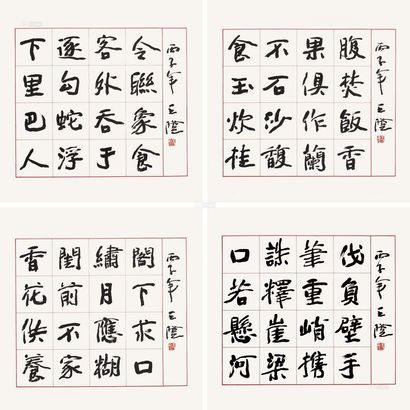 下逐客令
里勾外聯
巴蛇吞象
人浮于食
丙子年 王澄
食不果腹
玉石俱焚
炊沙作飯
桂馥蘭香
丙子年 王澄
香閨繡閣
花前月下
供不應求
養家糊口
丙子年 王澄
口誅筆伐
若釋重負
懸崖峭壁
河梁携手
丙子年 王澄